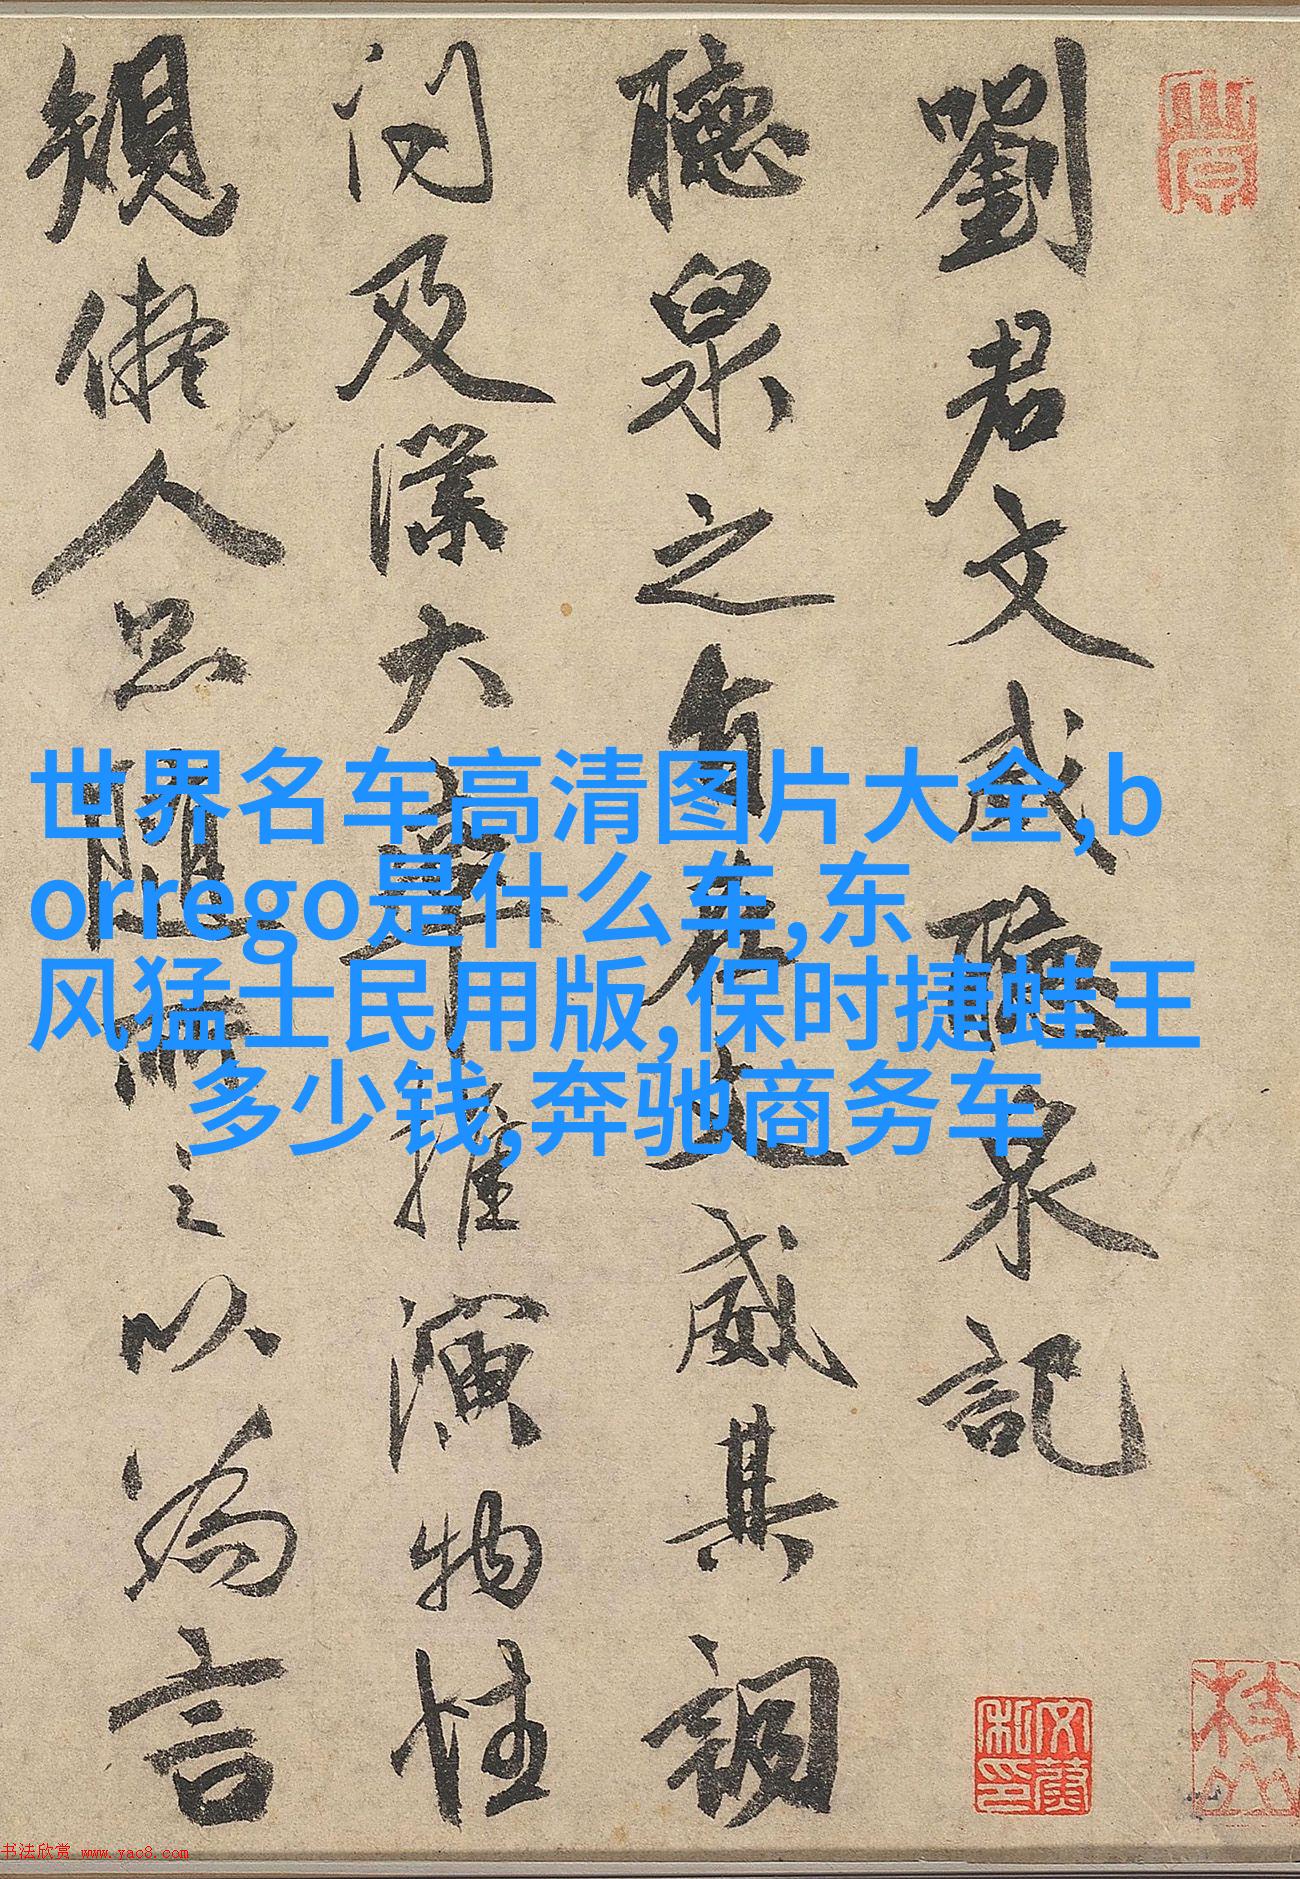 劉君文威聽泉記
聽泉之有在文威其調
问及澤大率推演物性
規儗人品隨而之以為言
世界名车高清图片大全,b
orrego是什么车,东
风猛士民用版,保时捷蛙王
多少钱,奔驰商务车
书法欣赏 www.yac8.com